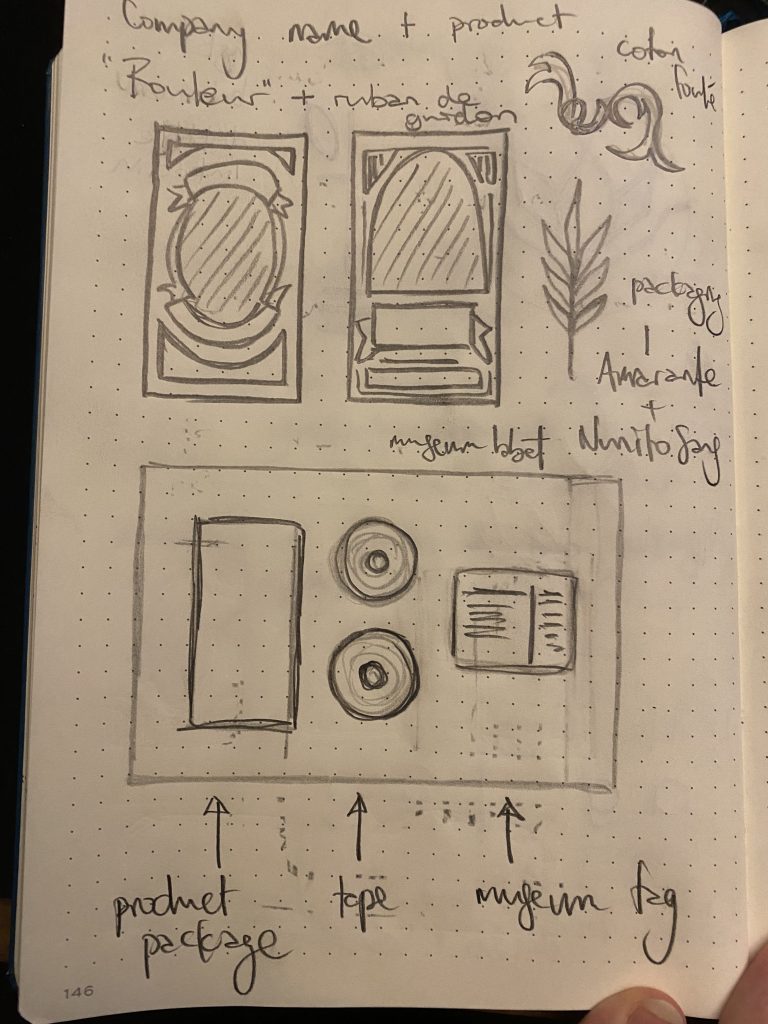 Company name + product
"Rouleur" + ruban de
guidon
coton
packaging
|
Amarante
+
Nunito Sans
museum label
product
package
tape
museum tag
146